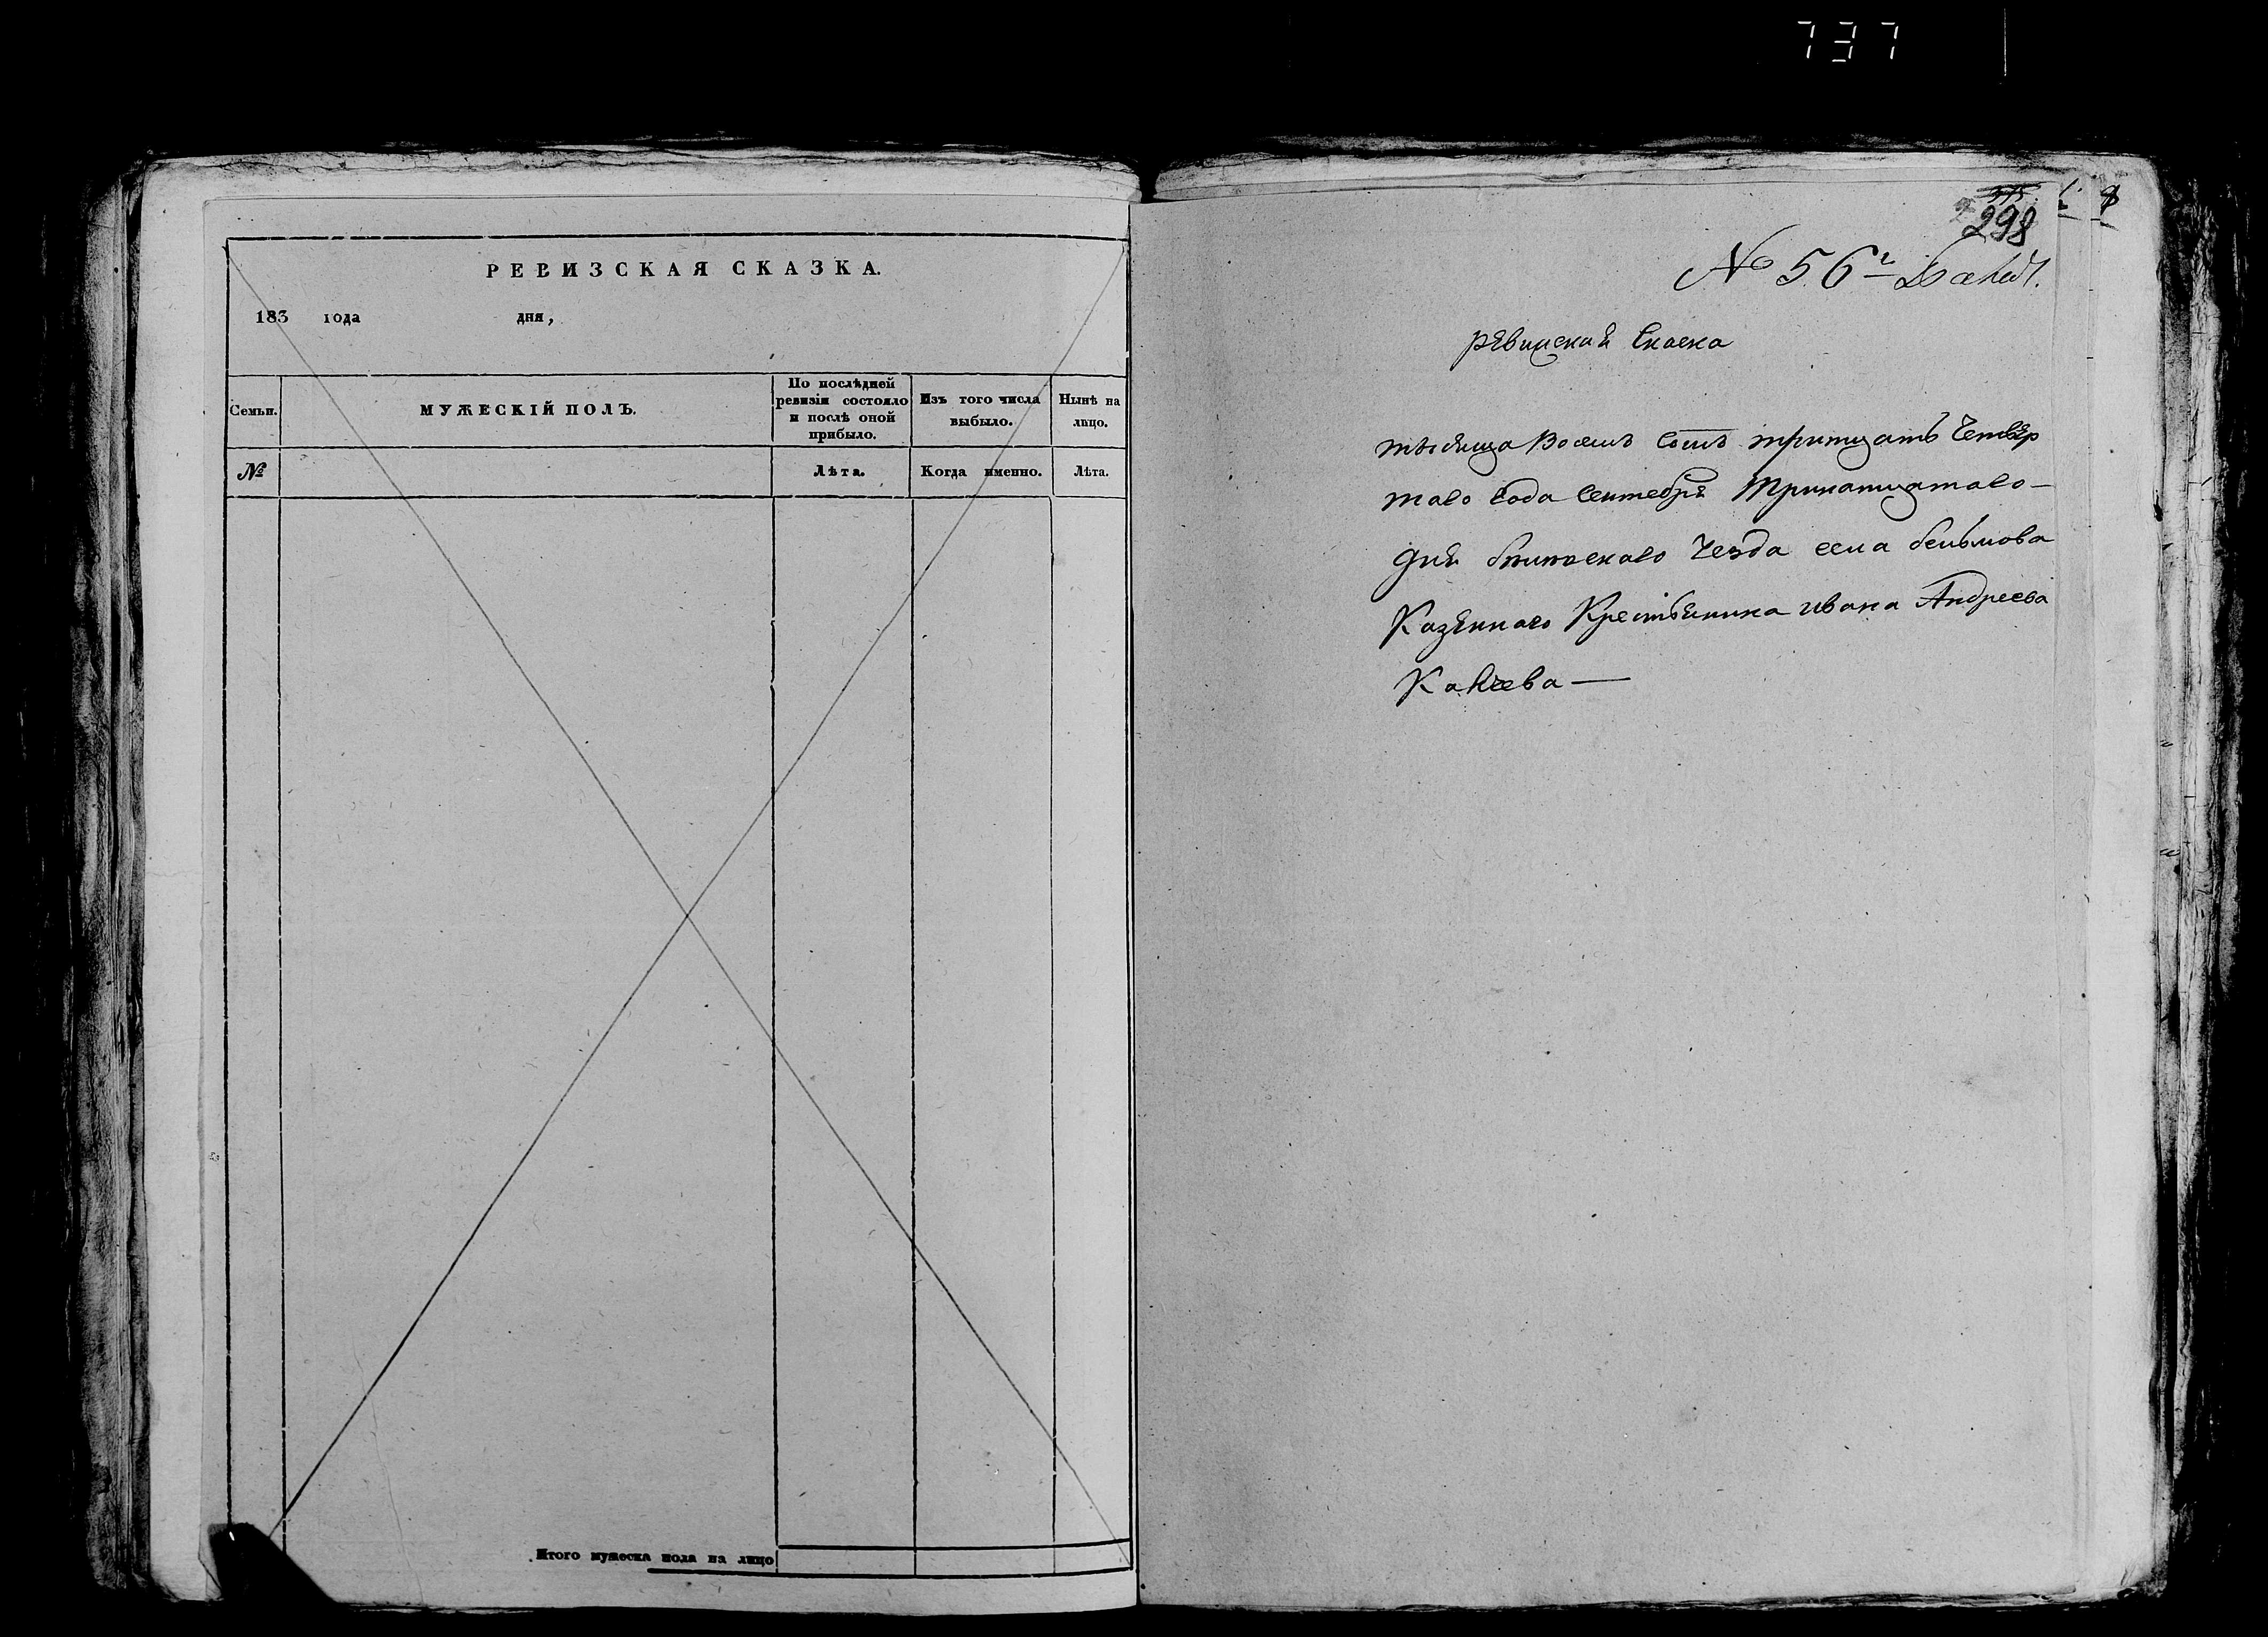 737
РЕВИЗСКАЯ СКАЗКА.
183 года дня,
Семьи.
МУЖЕСКІЙ ПОЛЪ.
По послѣдней
ревизіи состояло
и послѣ оной
прибыло.
Изъ того числа
выбыло.
Нынѣ на
лицо.
№
Лѣта.
Когда именно.
Лѣта.
Итого мужеска пола на лицо
298
№ 56
ревиская скаска
тысяща восемъ сотъ тритцать четвер
таго года сентебря тринатцатаго —
дня уезда села бельмова
Казеннаго Крестьянина ивана Андреева